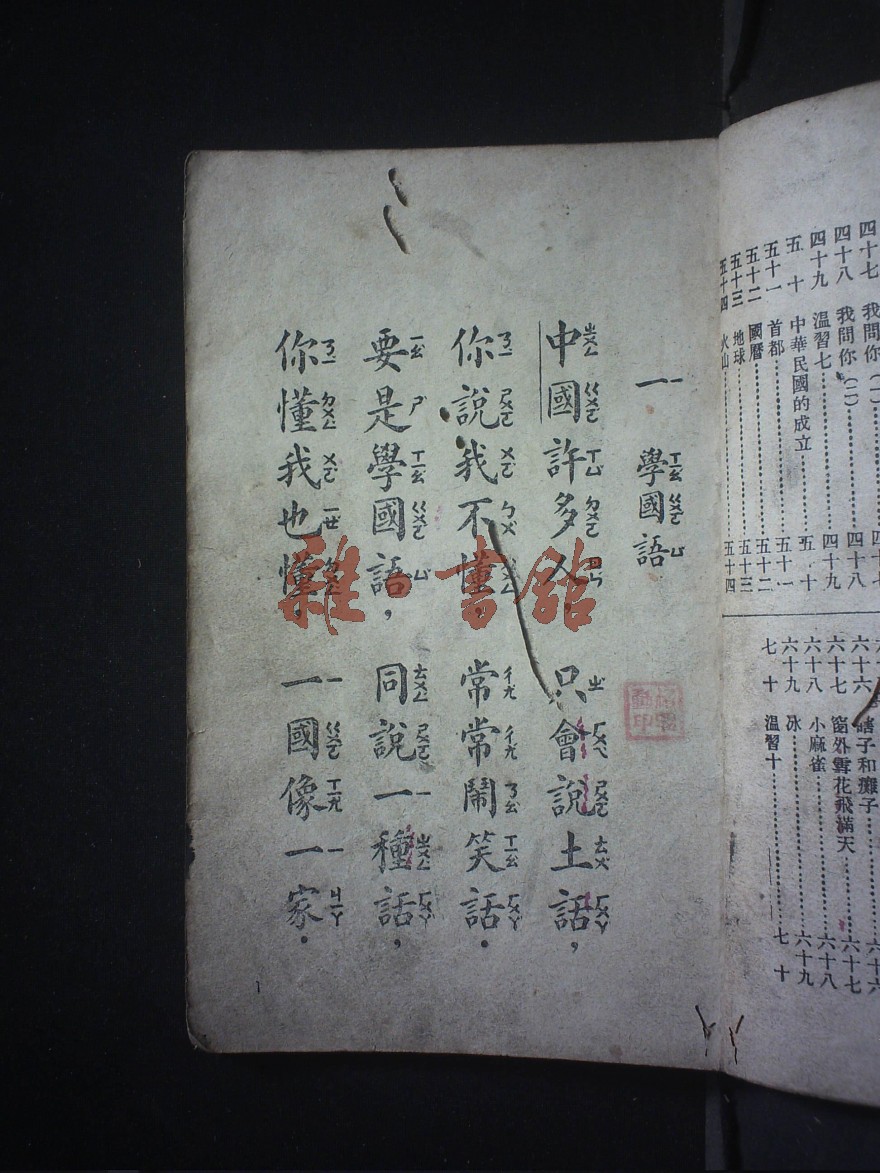 四十七 我問你(一)……四十七
四十八 我問你(二)……四十八
四十九 溫習七……四十九
五十 中華民國的成立……五十
五十一 首都……五十一
五十二 國曆……五十二
五十三 地球……五十三
五十四 火山……五十四
六十六 瞎子和癱子……六十六
六十七 窗外雪花飛滿天……六十七
六十八 小麻雀……六十八
六十九 冰……六十九
七十 溫習十……七十
一 學國語
中國許多人，只會說土話，
你說我不懂，常常鬧笑話．
要是學國語，同說一種話，
你懂我也懂，一國像一家．
雜·書館